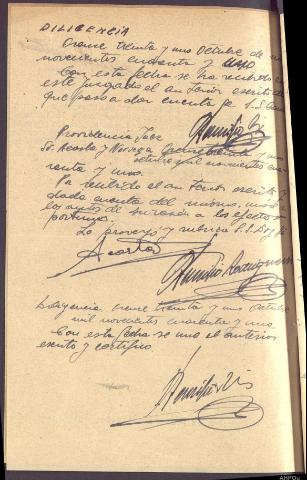 DILIGENCIA
Orense treinta y uno Octubre de mil
novecientos cuarenta y uno
Con esta fecha se ha recibido en
este Juzgado el anterior escrito de
que paso a dar cuenta a S.S.
Providencia Juez
Sr. Acosta y Noriega Orense treinta y uno
octubre mil novecientos cua
renta y uno.
Por recibido el anterior escrito y
dado cuenta del mismo, únase a
los autos de su razón a los efectos o
portunos.
Lo proveyó y rubrica S.S. Doy fe
Acosta
Diligencia Orense treinta y uno Octubre
mil novecientos cuarenta y uno.
Con esta fecha se une el anterior
escrito y certifico
AHPOu